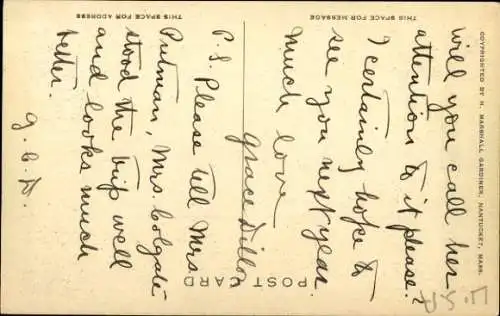 will you call her
attention to it please?
I certainly hope to
see you next year.
Much love
Grace Dillon
P.S. Please tell Mrs.
Putman, Mrs. Colgate
stood the trip well
and looks much
better.
G. C. D.
POST CARD
THIS SPACE FOR MESSAGE
THIS SPACE FOR ADDRESS
COPYRIGHTED BY H. MARSHALL GARDINER, NANTUCKET, MASS.